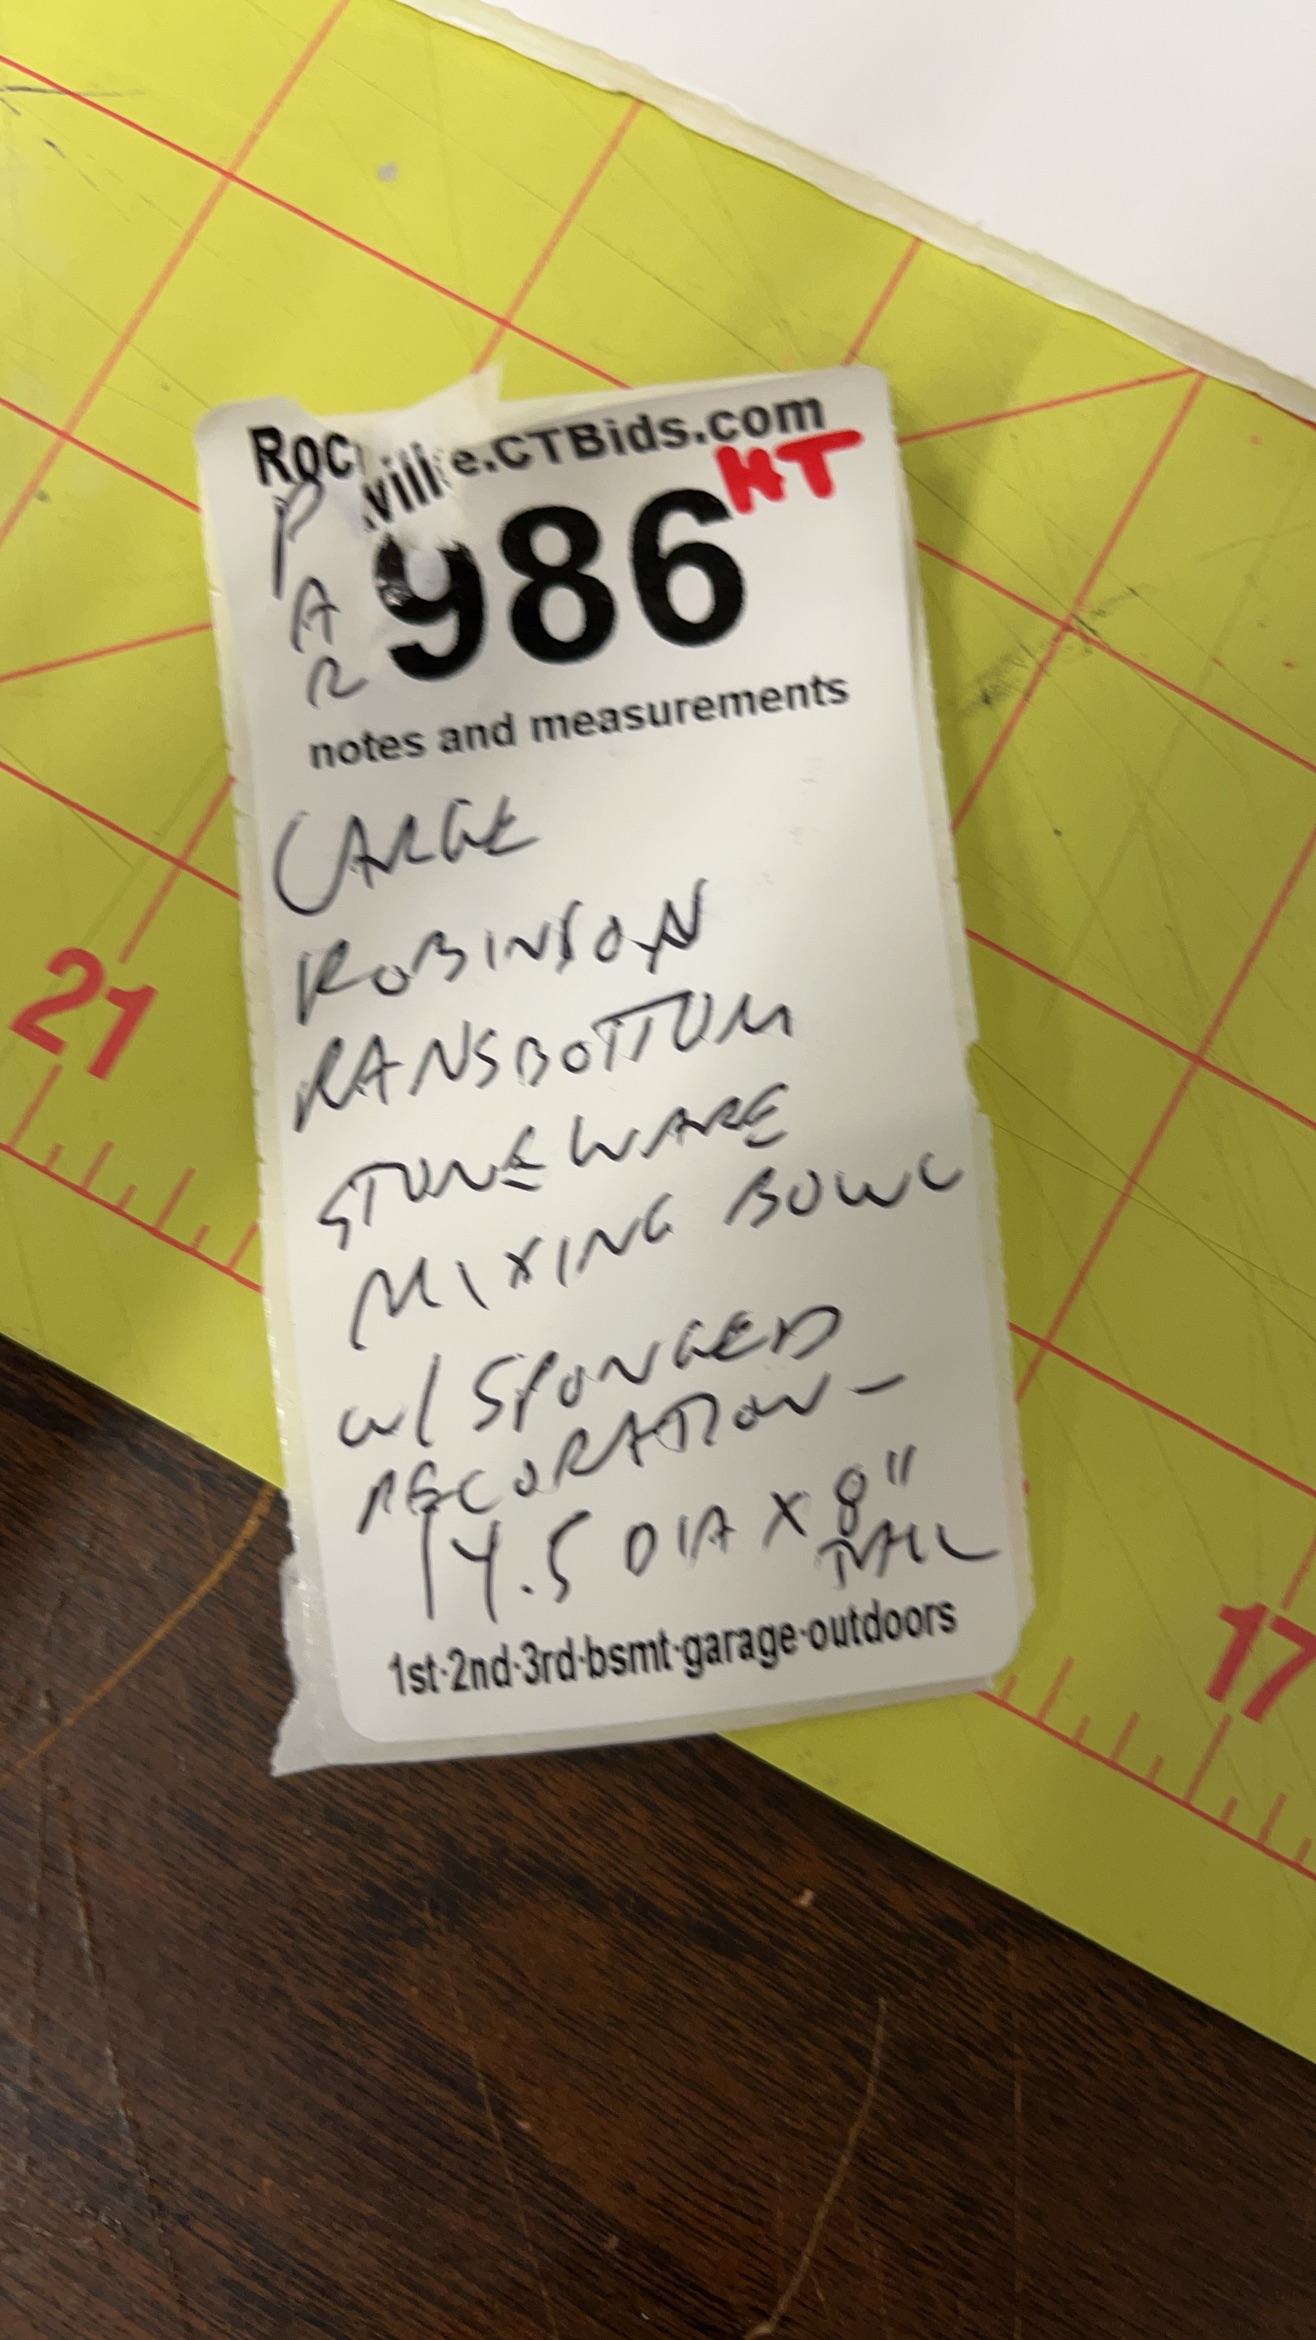 Rockville.CTBids.com
HT
986
P
A
R
notes and measurements
LARGE
ROBINSON
RANSBOTTOM
STONEWARE
MIXING BOWL
W/ SPONGED
DECORATION-
14.5 DIA X 8"
TALL
1st·2nd·3rd·bsmt·garage·outdoors
21
17